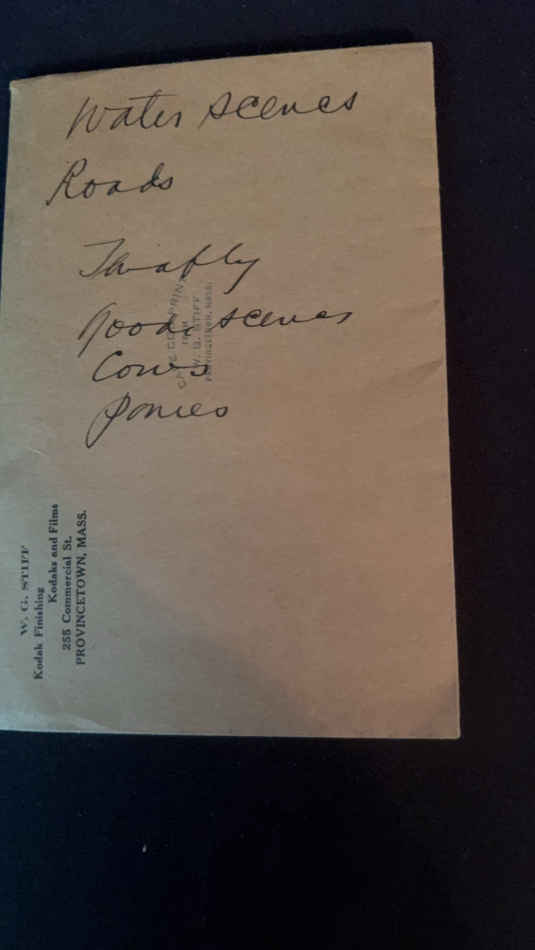 Water scenes
Roads
Good scenes
Cows
Ponies
W. G. STIFF
PROVINCETOWN, MASS.
W. G. STIFF
Kodak Finishing
Kodaks and Films
255 Commercial St.
PROVINCETOWN, MASS.